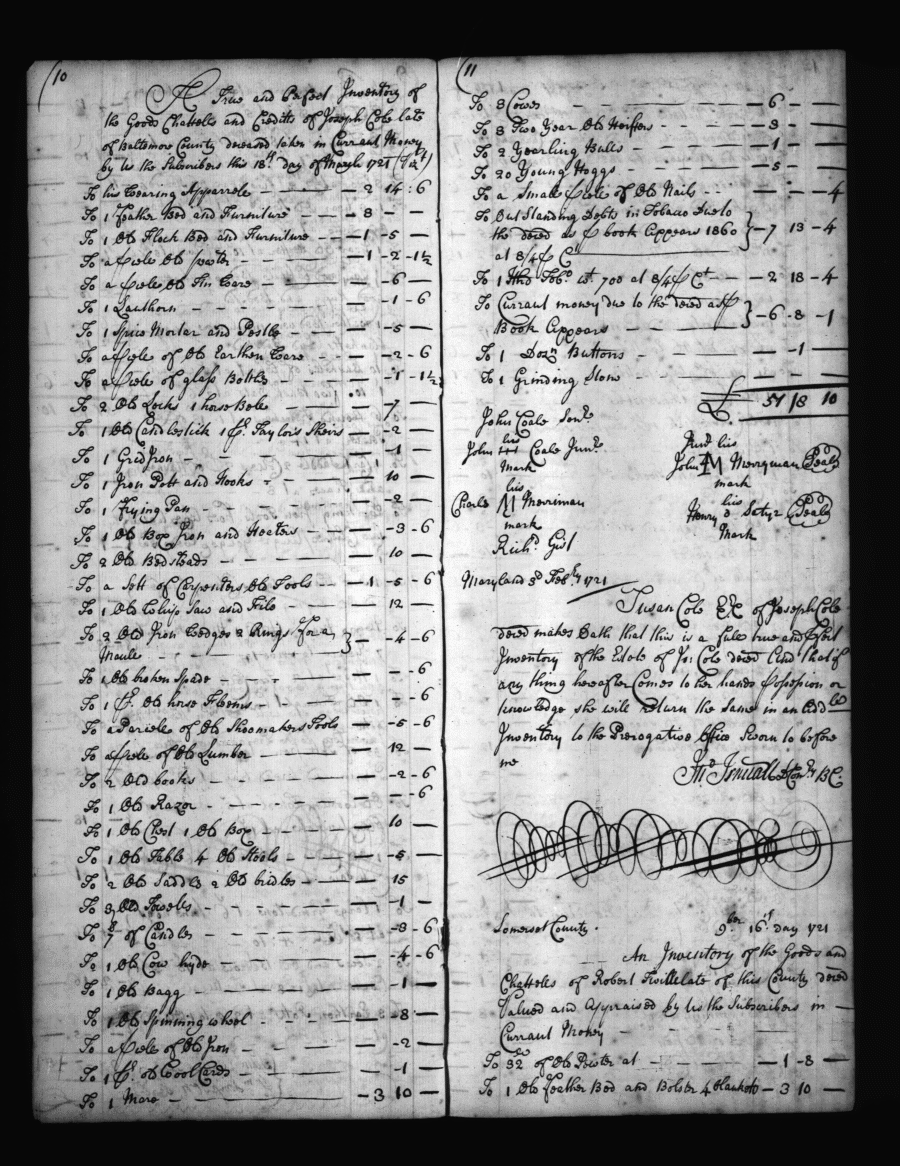 10
A True and Perfect Inventory of
the Goods Chattells and Credits of Joseph Cole late
of Baltimore County deceased taken in Currant Money
by us the Subscribers this 18th day of March 1721
To his Wearing Apparrele - 2 14 : 6
To 1 Feather Bed and Furniture - 8 - -
To 1 Old Flock Bed and Furniture - 1 - 5 -
To a Old Pewter - 1 - 2 - 1½
To a Old Tin Ware - 6 -
To 1 Lanthorn - 1 - 6
To 1 Spice Mortar and Pestle - 5 -
To a of Old Earthen Ware - 2 - 6
To a of glass Bottles - 1 - 1½
To 2 Old Locks 1 horse Bole - 7 -
To 1 Old Candlestick 1 Pr Taylors Sheirs - 2 -
To 1 Grid Iron - 1 -
To 1 Iron Pott and Hooks - 10 -
To 1 Frying Pan - 2 -
To 1 Old Box Iron and Heaters - 3 - 6
To 2 Old Bedsteads - 10 -
To a Sett of Carpenters Old Tools - 1 - 5 - 6
To 1 Old Whip Saw and File - 12 -
To 2 Old Iron Wedges 2 Rings for a } - 4 - 6
Maule
To 1 Old broken Spade - 6
To 1 Pr Old horse Fleems - 6
To a of Old Shoomakers Tools - 5 - 6
To a of Old Lumber - 12 -
To 2 Old books - 2 - 6
To 1 Old Razor - 6
To 1 Old Chest 1 Old Box - 10 -
To 1 Old Table 4 Old Stools - 5 -
To 2 Old Saddles 2 Old bridles - 15
To 3 Old Towels - 1 -
To 7 of Candles - 3 - 6
To 1 Old Cow hyde - 4 - 6
To 1 Old Bagg - 1 -
To 1 Old Spinning wheel - 8 -
To a of Old Iron - 2 -
To 1 Pr old Wool Cards - 1 -
To 1 Mare - 3 10 -
11
To 3 Cowes - 6 - -
To 3 Two Year Old Heiffers - 3 -
To 2 Yearling Bulls - 1 -
To 20 Young Hoggs - 5 -
To a Small of Old Nails - 4
To Out Standing Debts in Tobacco Due to
the deced as P book Appears 1860 } - 7 13 - 4
at 8/4 P Ct
To 1 Hhd Tobo wt 700 at 8/4 P Ct - 2 18 - 4
To Currant money due to the deced as P } - 6 - 8 - 1
Book Appears
To 1 Dozn Buttons - 1 -
To 1 Grinding Stone
£ 51 18 10
John Coale Senr
his
John Coale Junr
mark
his
Charles M Merriman
mark
Richd Gist
his
John M Merryman Seale
mark
his
Henry Satyr Seale
Mark
Maryland 3d Febry 1721
Susan Cole of Joseph Cole
deced makes Oath that this is a full true and pfect
Inventory of the Estate of Jos Cole deced And that if
any thing hereafter Comes to her hands possession or
knowledge she will return the same in an add
Inventory to the Prerogative Office Sworn to before
me
Somerset County. 9ber 16t day 1721
An Inventory of the Goods and
Chattells of Robert late of this County deced
Valued and Appraised by us the Subscribers in
Currant Money
To 32 of Old Pewter at - 1 - 8 -
To 1 Old Feather Bed and Bolster 4 blankets - 3 10 -